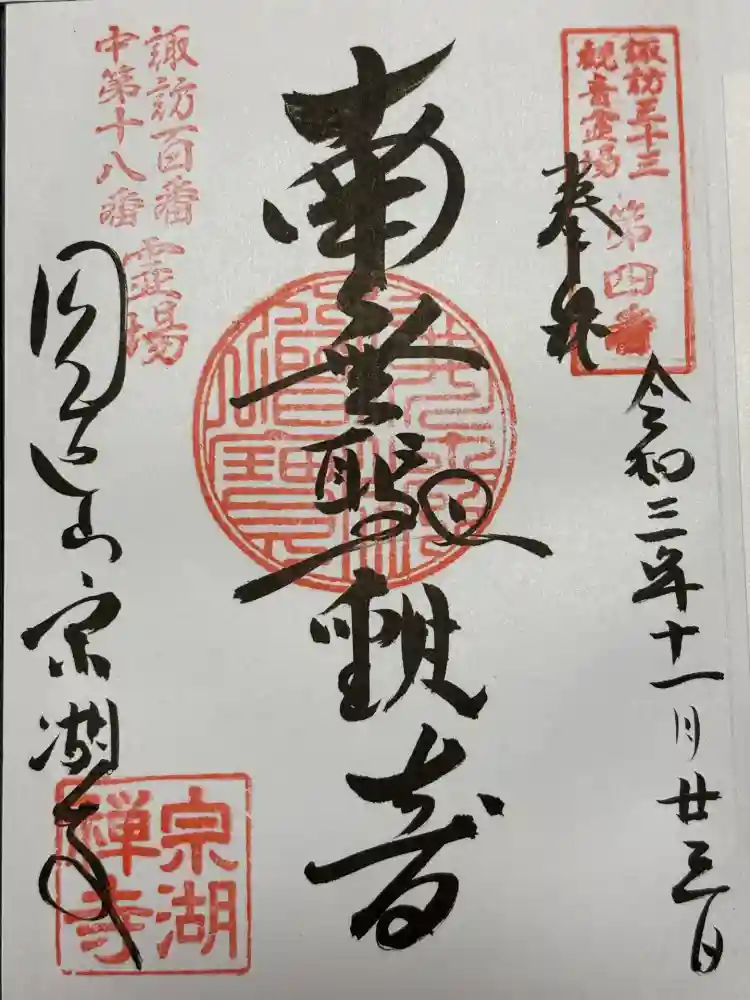 諏訪三十三
観音霊場
第四番
奉拝
令和三年十一月廿三日
南無聖観音
諏訪百番
中第十八番
霊場
宗湖寺
宗湖
禅寺